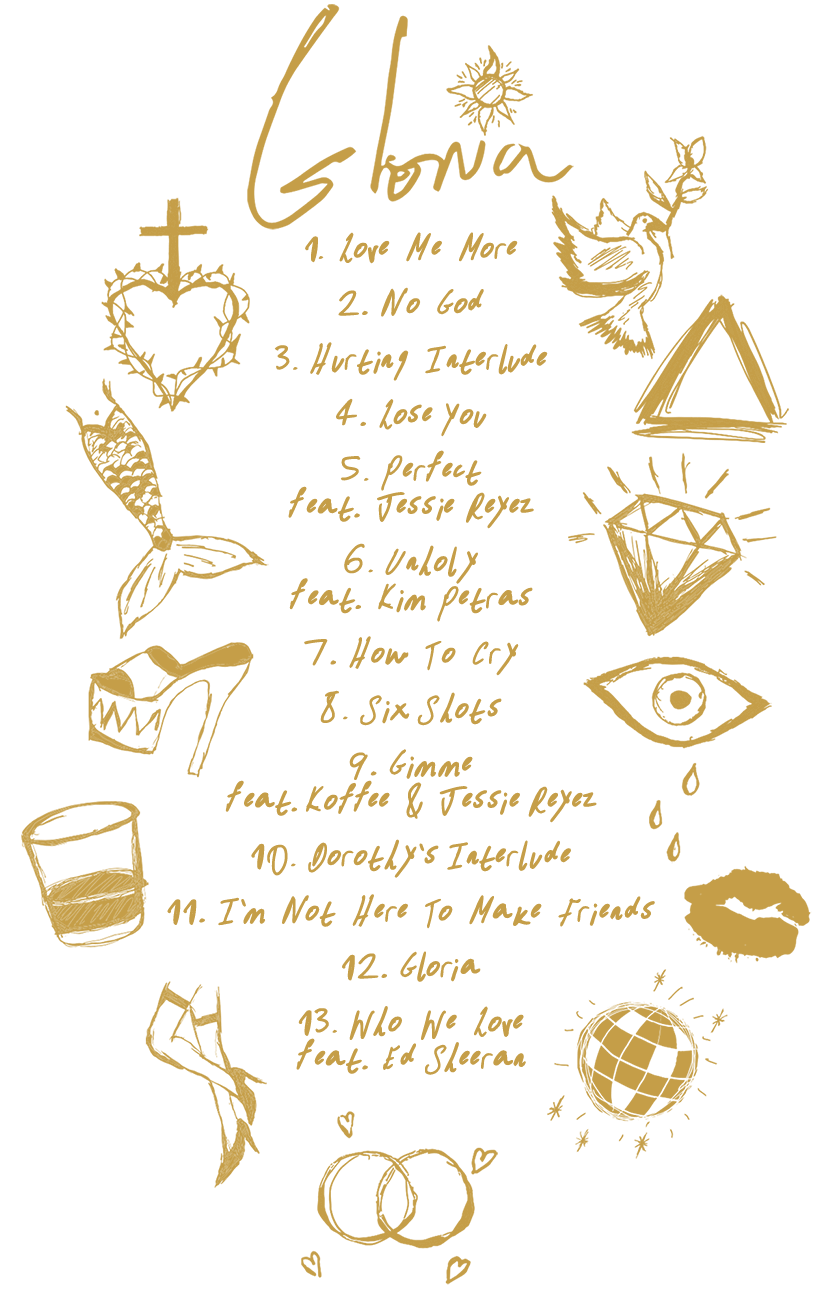 Gloria
1. Love Me More
2. No God
3. Hurting Interlude
4. Lose You
5. Perfect
feat. Jessie Reyez
6. Unholy
feat. Kim Petras
7. How To Cry
8. Six Shots
9. Gimme
feat. Koffee & Jessie Reyez
10. Dorothy's Interlude
11. I'm Not Here To Make Friends
12. Gloria
13. Who We Love
feat. Ed Sheeran